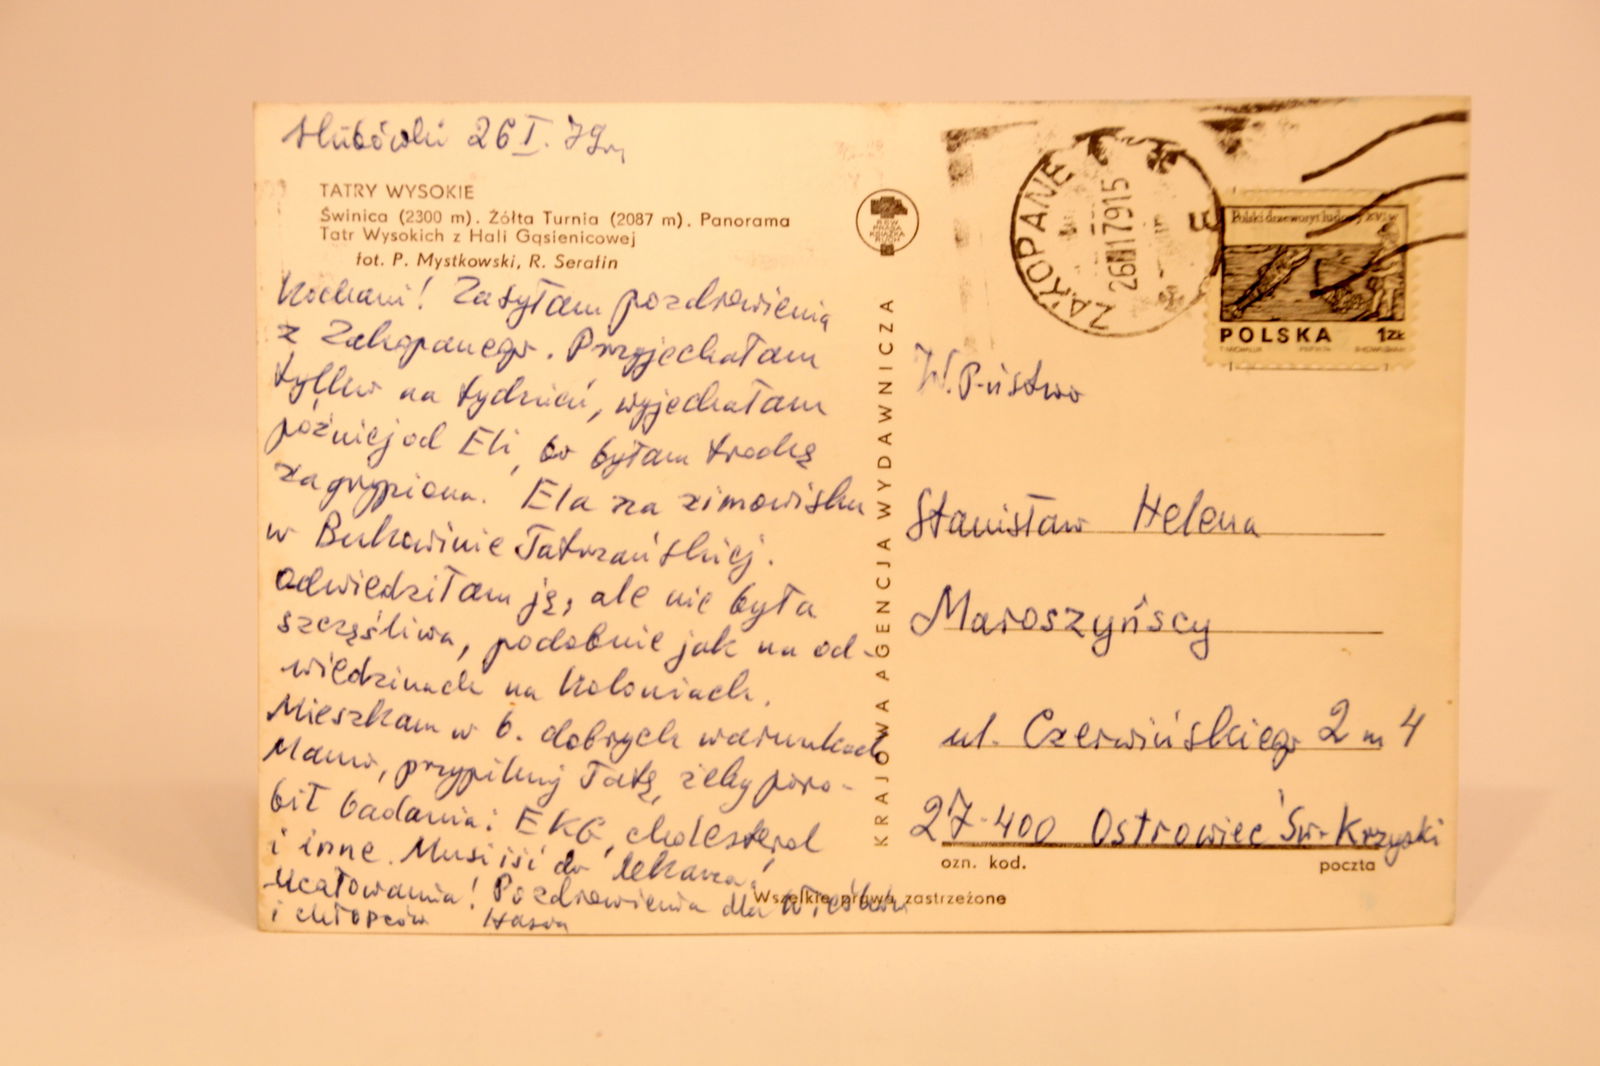 26 I. 79 r.
TATRY WYSOKIE
Świnica (2300 m). Żółta Turnia (2087 m). Panorama
Tatr Wysokich z Hali Gąsienicowej
fot. P. Mystkowski, R. Serafin
Kochani! Zasyłam pozdrowienia
z Zakopanego. Przyjechałam
tylko na tydzień, wyjechałam
później od Eli, bo byłam trochę
zagrypiona. Ela na zimowisku
w Bukowinie Tatrzańskiej.
Odwiedziłam ją, ale nie była
szczęśliwa, podobnie jak na od-
wiedzinach na koloniach.
Mieszkam w b. dobrych warunkach
Mamo, przypilnuj Tatę, żeby poro-
bił badania: EKG, cholesterol
i inne. Musi iść do lekarza!
Ucałowania! Pozdrowienia dla
i chłopców
RSW
PRASA
KSIĄŻKA
RUCH
KRAJOWA AGENCJA WYDAWNICZA
ZAKOPANE 3
26 1 79 15
Polski drzeworyt ludowy XVI w
POLSKA 1 ZŁ
W. Państwo
Stanisław Helena
Maroszyńscy
ul. Czerwińskiego 2 m 4
27-400 Ostrowiec Św-Krzyski
ozn. kod. poczta
Wszelkie prawa zastrzeżone